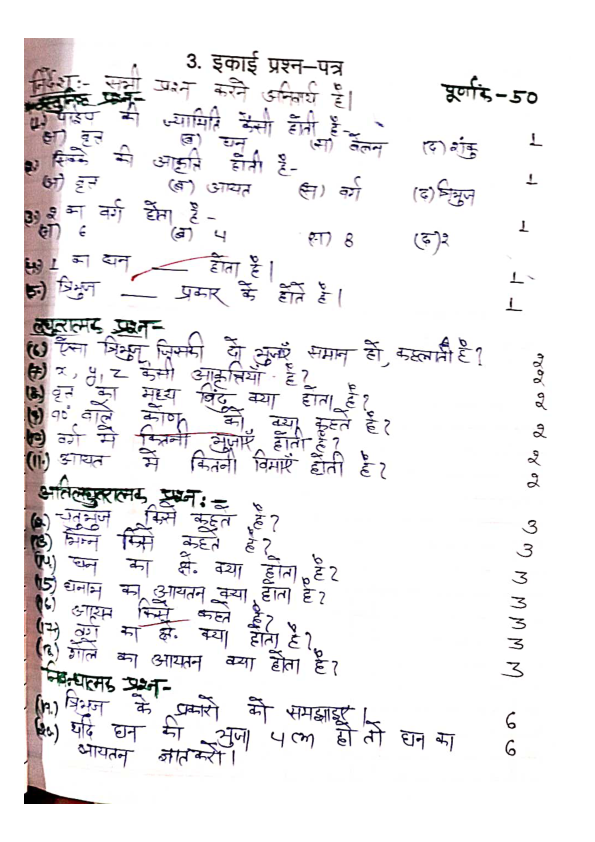 3. इकाई प्रश्न–पत्र
निर्देश:- सभी प्रश्न करने अनिवार्य है। पूर्णांक-50
प्रश्न-
(1.) पाईप की ज्यामिति कैसी होती है-
(अ) वृत्त (ब) घन (स) बेलन (द) शंकु 1
2.) सिक्के की आकृति होती है-
(अ) वृत्त (ब) आयत (स) वर्ग (द) त्रिभुज 1
3.) २ का वर्ग होता है -
(अ) 6 (ब) 4 (स) 8 (द) २ 1
4.) 1 का घन ___ होता है। 1
5.) त्रिभुज ___ प्रकार के होते है। 1
लघुत्तरात्मक प्रश्न-
(6.) ऐसा त्रिभुज, जिसकी दो भुजाएँ समान हो, कहलाती है? २
(7.) x, y, z कैसी आकृतियाँ है? २
(8.) वृत्त का मध्य बिंदु क्या होता है? २
(9.) ९०° वाले कोण को क्या कहते है? २
(10.) वर्ग में कितनी भुजाएँ होती है? २
(11.) आयत में कितनी विमाएँ होती है? २
अतिलघुत्तरात्मक प्रश्न:-
(12.) चतुर्भुज किसे कहते है? 3
(13.) भिन्न किसे कहते है? 3
(14) घन का क्षे. क्या होता है? 3
(15) घनाभ का आयतन क्या होता है? 3
(16) किसे कहते है? 3
(17) वर्ग का क्षे. क्या होता है? 3
(18.) गोले का आयतन क्या होता है? 3
निबन्धात्मक प्रश्न-
(19.) त्रिभुज के प्रकारों को समझाइए। 6
(20.) यदि घन की भुजा 4 cm हो तो घन का 6
आयतन ज्ञात करो।